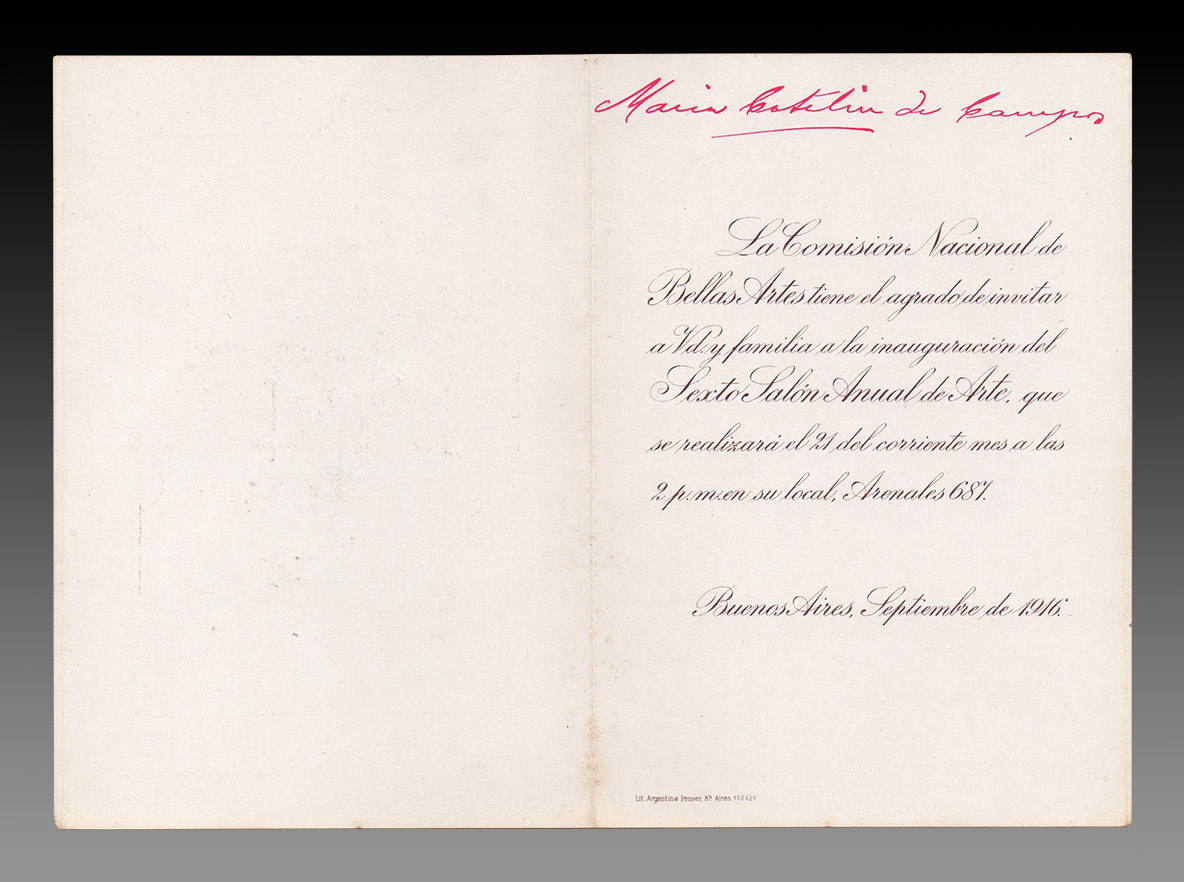 Maria Cotelin de Campos
La Comisión Nacional de
Bellas Artes tiene el agrado de invitar
a Vd. y familia a la inauguración del
Sexto Salón Anual de Arte, que
se realizará el 21 del corriente mes a las
2 p.m. en su local, Arenales 687.
Buenos Aires, Septiembre de 1916.
Lit. Argentina Peuser, Bs Aires